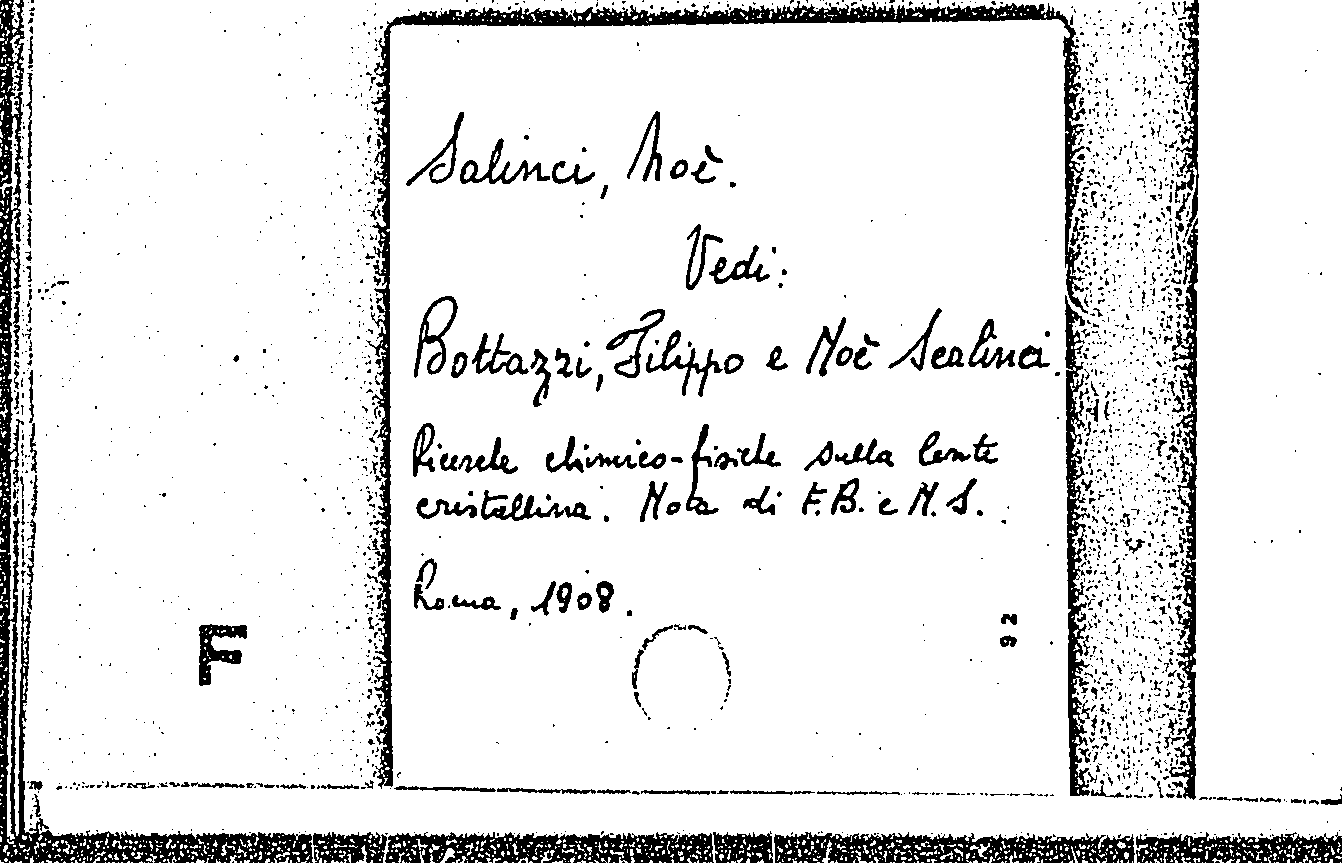 Salinci, Noè.
Vedi:
Bottazzi, Filippo e Noè Scalinci.
Ricerche chimico-fisiche sulla lente
cristallina. Nota di F.B. e N.S.
Roma, 1908.
F
92